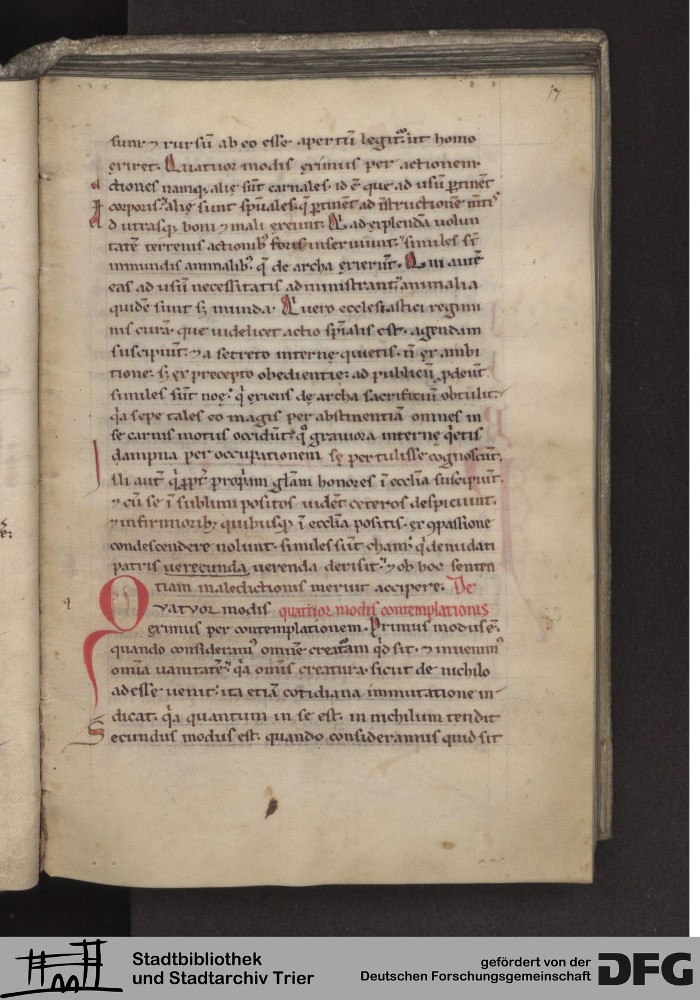 17
sunt ⁊ rursū ab eo esse apertū legit᷑. ut homo
exiret. Quatuor modis eximus per actionem.
Actiones namq; alię sūt carnales. id ē que ad usū ꝑtinēt
corporis. alię sunt spūales. q̄ ꝑtinēt ad īstructionē mītis
Ad utrasq; boni ⁊ mali exeunt. Qͥ ad explendā volun
tatē terrenis actionibꝰ foris inserviunt. similes sť
inmundis animalibꝰ. q̄ de archa exierūt. Qui autē
eas ad usū necessitatis administrant. animalia
quidē sunt sꝫ munda. Qͥ uero ecclesiastici regimi
nis curā. que uidelicet actio spīalis est. agendam
suscipiūt. ⁊ a secreto internę quietis. ñ ex ambi
tione. sꝫ ex precepto obedientię. ad publicū ꝓdeūt.
similes sūt noę. qͥ exiens de archa sacrificiū obtulit.
qͥa sepe tales eo magis per abstinentiā omnes in
se carnis motus occidūt. qͦ graviora internę qͥetis
dampna per occupationem se pertulisse cognoscūt.
Illi aūt qͥ ꝓpť propͥam glām honores ī ecclīa suscipiūt.
⁊ cū se ī sublimi positos vidēt ceteros despiciunt.
⁊ infirmiorib; quibusqꝫ ī ecclīa positis. ex ꝯpassione
condescendere nolunt. similes sūt cham. qͥ denudati
patris verecunda uerenda derisit. ⁊ ob hoc senten
tiam maledictionis meruit accipere. De
Qvatvor modis quatuor modis contemplationis
eximus per contemplationem. Primus modus ē.
quando consideramꝰ omnē creatͣam qͥd sit. ⁊ inuenimꝰ
omīa vanitatē. qͥa omīs creatura. sicut de nichilo
ad esse uenit. ita etiā cotidiana inmutatione in-
dicat. qͥa quantum in se est. in nichilum tendit
Secundus modus est. quando consideramus quid sit
Stadtbibliothek
und Stadtarchiv Trier
gefördert von der
Deutschen Forschungsgemeinschaft
DFG